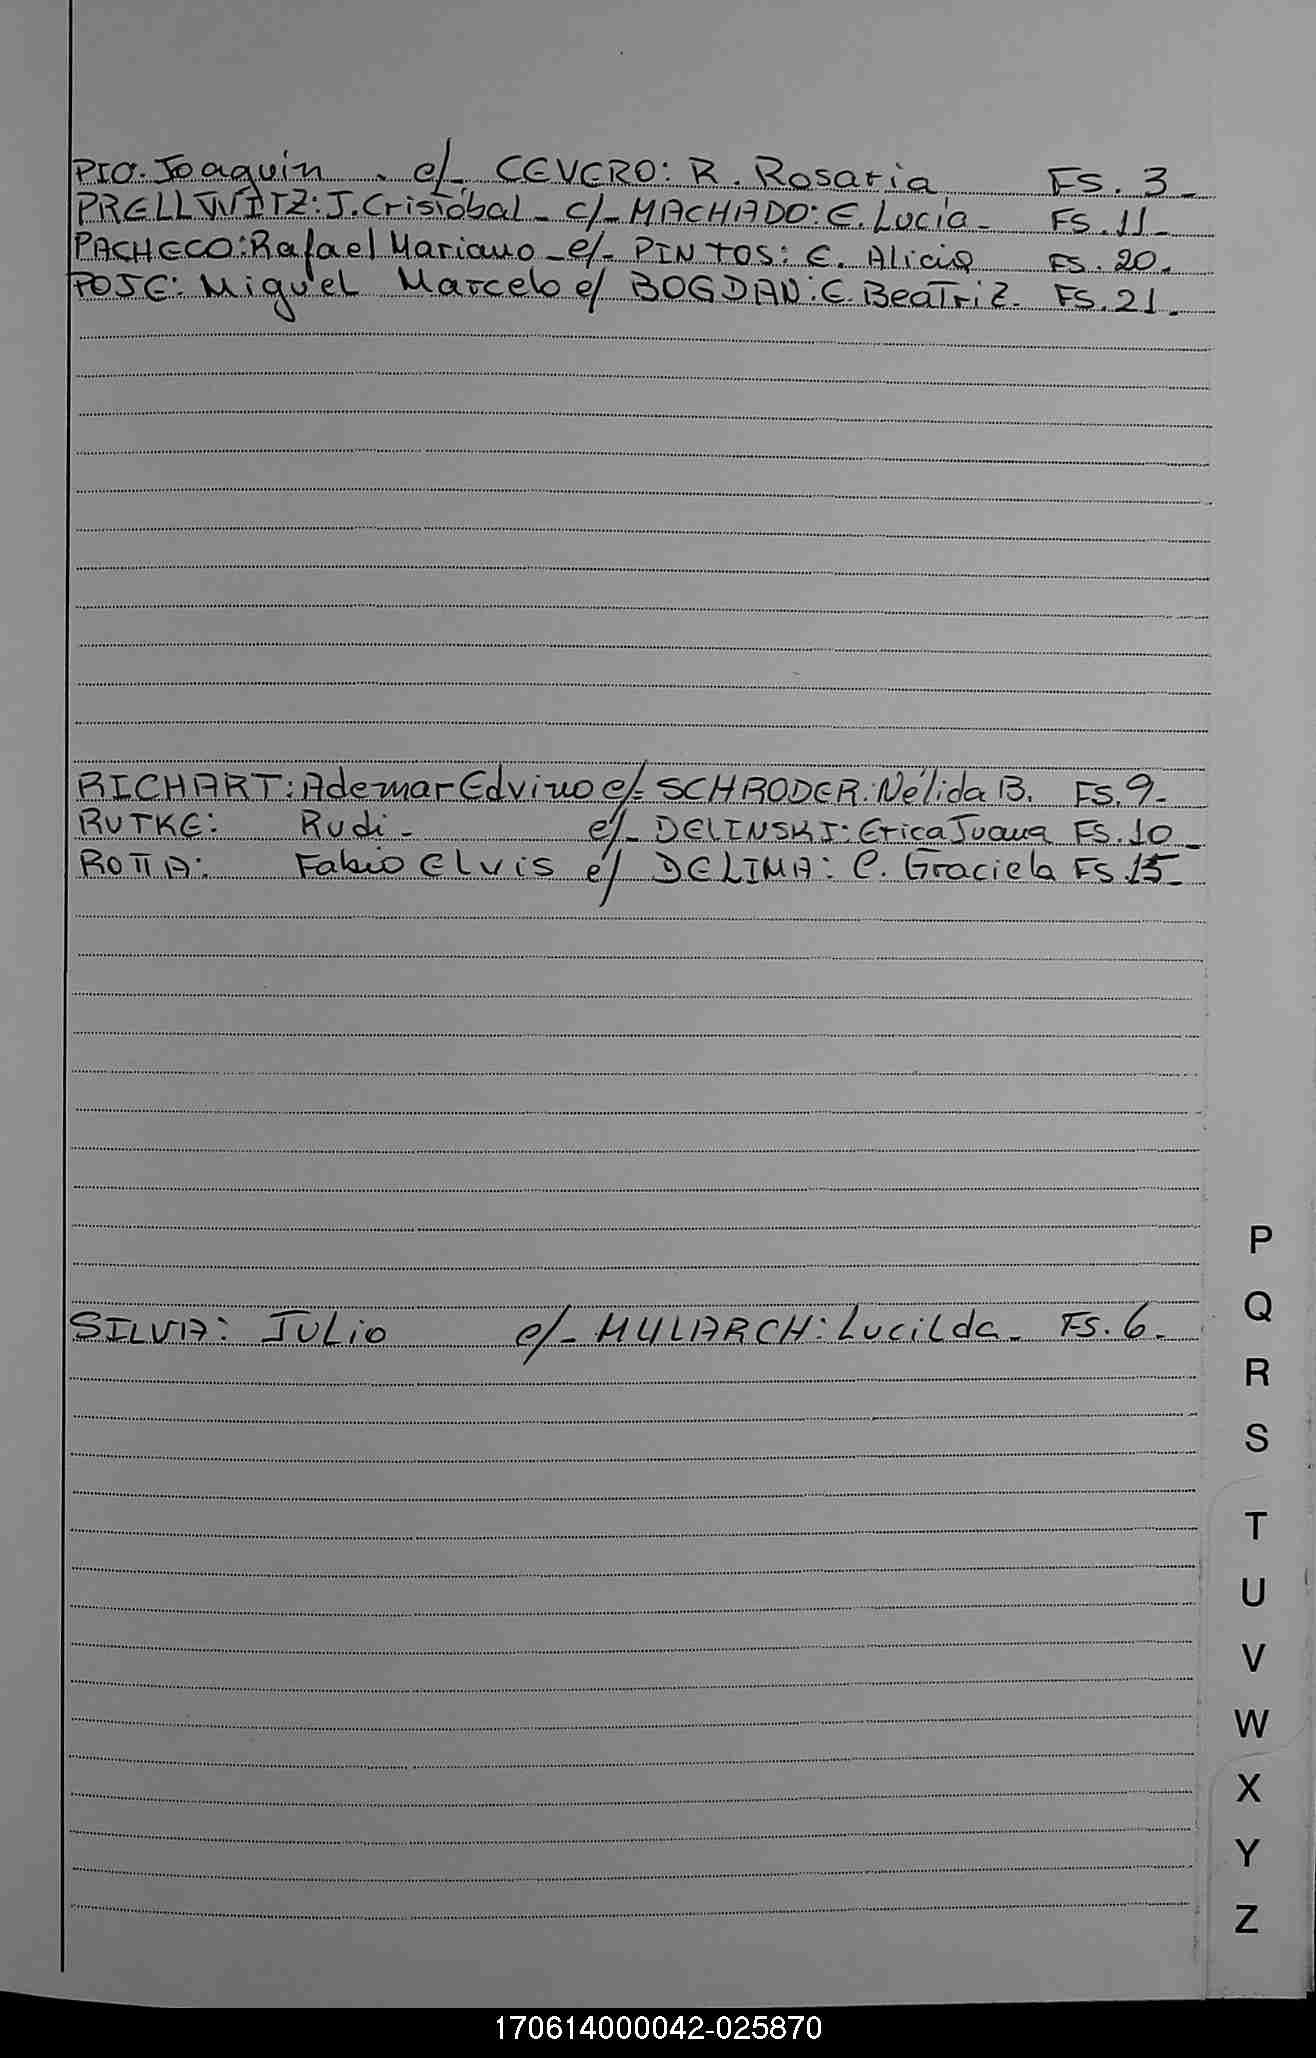 PIO. Joaquin . c/- CEVERO: R. Rosaria FS. 3_
PRELLWITZ: J. Cristobal - c/- MACHADO: E. Lucía - FS. 11_
PACHECO: Rafael Mariano - c/- PINTOS: E. Alicia FS. 20.
POSE: Miguel Marcelo c/ BOGDAN: E. Beatriz. FS. 21.
RICHART: Ademar Edvino c/= SCHRODER: Nélida B. FS. 9-
RUTKE: Rudi - c/- DELINSKI: Erica Juana FS. 10_
ROTTA: Fabio Elvis c/ DELIMA: C. Graciela FS. 15_
SILVA: Julio c/- MULARCH: Lucilda - FS. 6.
P
Q
R
S
T
U
V
W
X
Y
Z
170614000042-025870